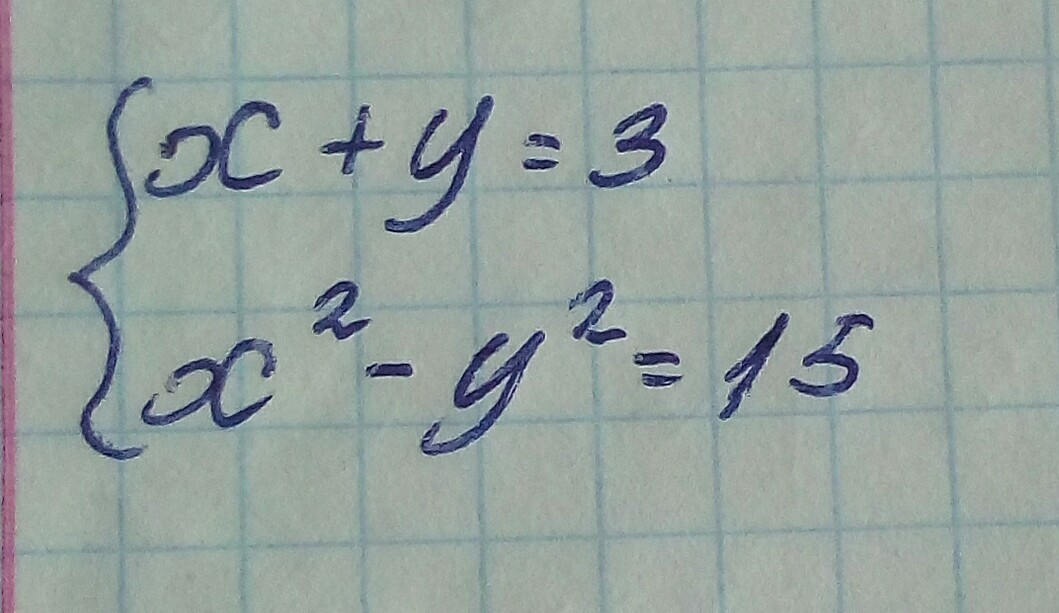 x + y = 3
x² - y² = 15